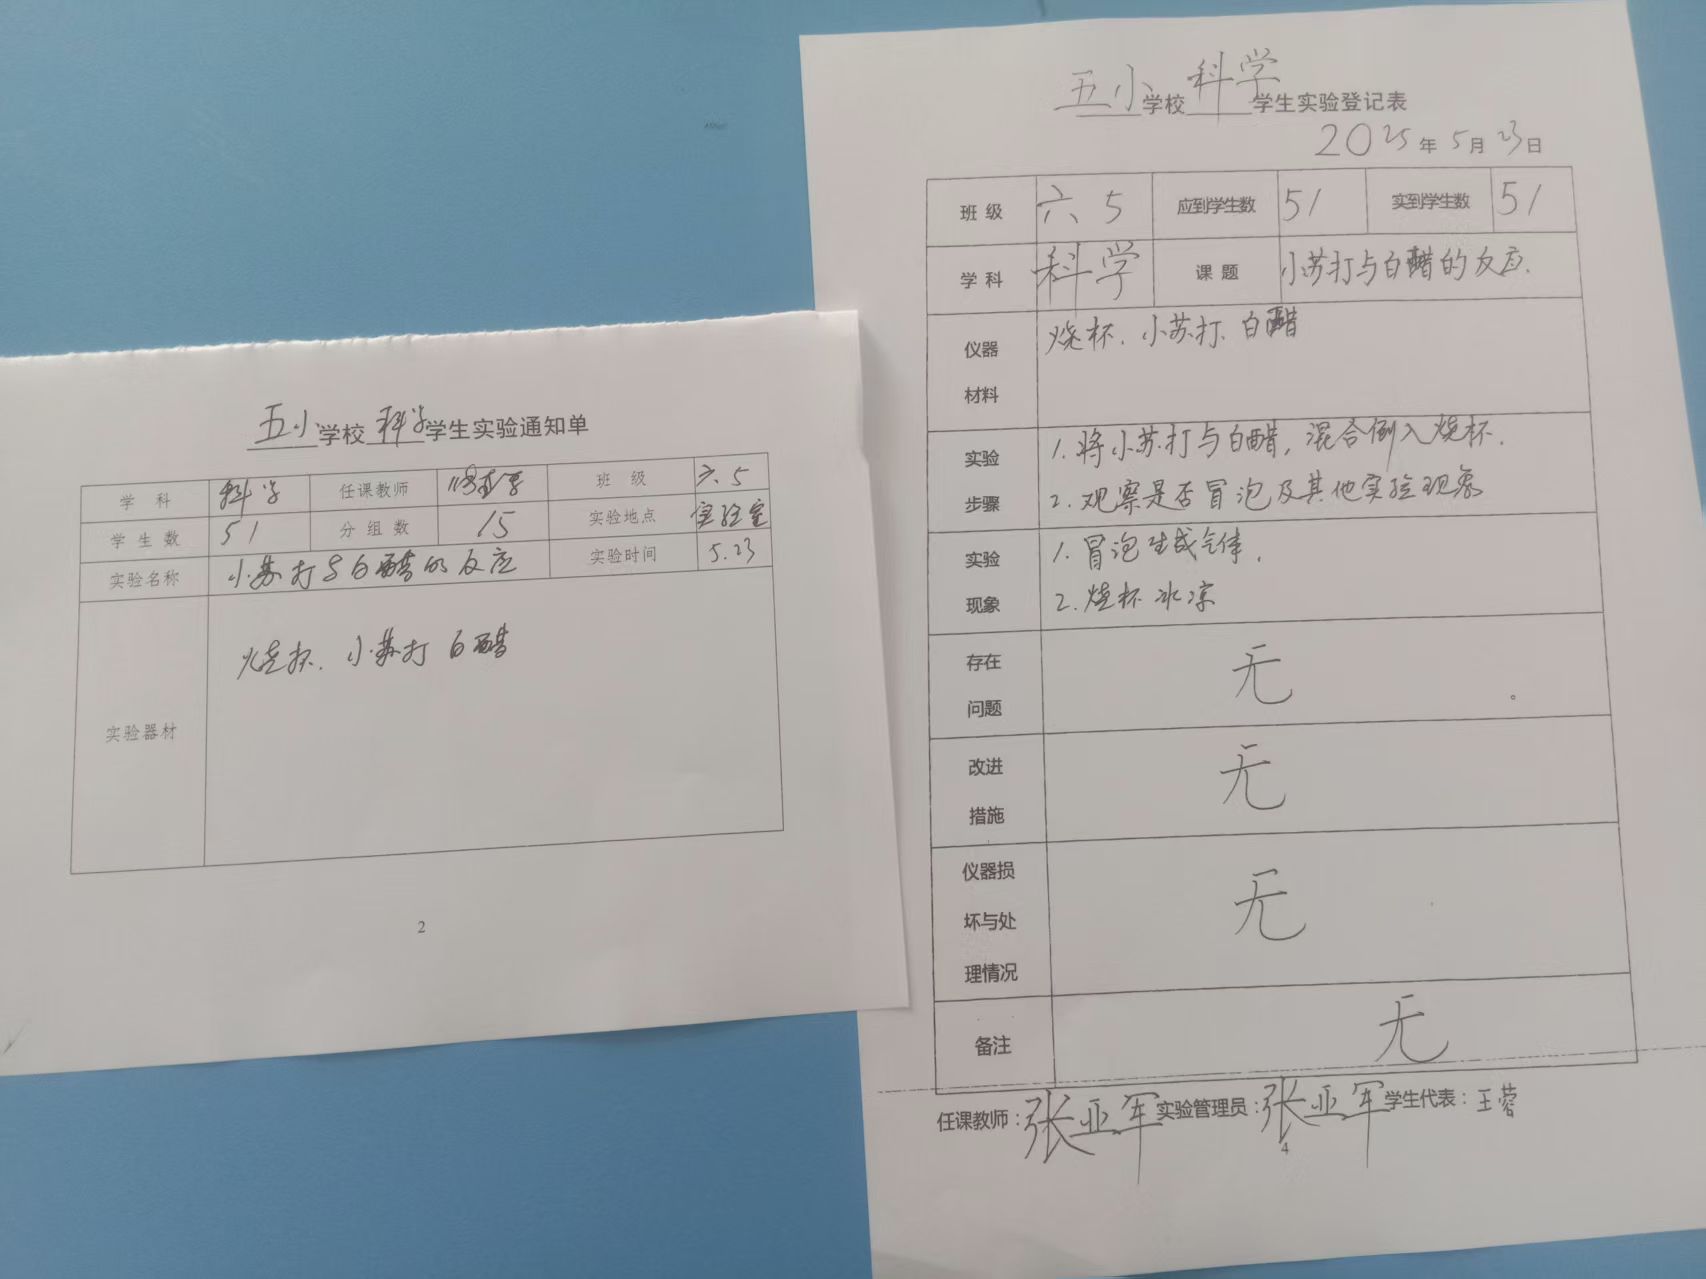 五小学校科学学生实验通知单
学科 科学 任课教师 班级 六.5
学生数 51 分组数 15 实验地点 实验室
实验名称 小苏打与白醋的反应 实验时间 5.23
实验器材 烧杯、小苏打 白醋
2
五小学校科学学生实验登记表
2025年5月23日
班级 六 5 应到学生数 51 实到学生数 51
学科 科学 课题 小苏打与白醋的反应.
仪器材料 烧杯、小苏打、白醋
实验步骤 1.将小苏打与白醋,混合倒入烧杯.
2.观察是否冒泡及其他实验现象
实验现象 1.冒泡生成气体.
2.烧杯冰凉
存在问题 无
改进措施 无
仪器损坏与处理情况 无
备注 无
任课教师:张亚军 实验管理员:张亚军 学生代表:王蓉
4